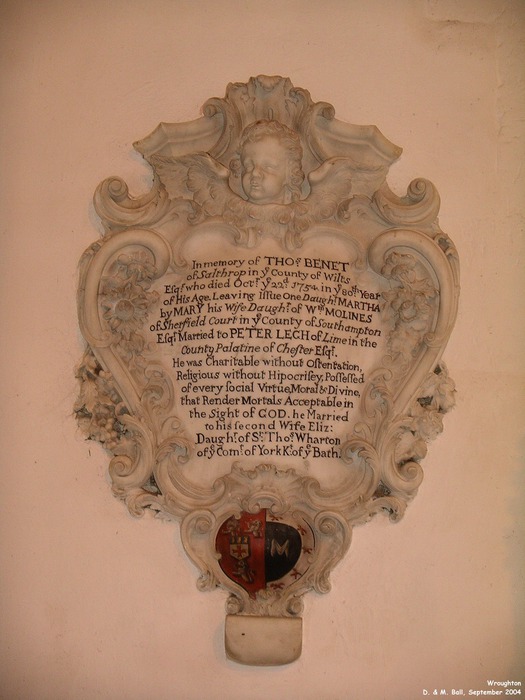 In memory of THO.s BENET
of Salthrop in y.e County of Wilts
Esq.r who died Oct.r y.e 22.d 1754. in y.e 80.th Year
of His Age. Leaving Iſſue one Daugh.r MARTHA
by MARY his Wife Daugh.r of W.m MOLINES
of Sherfield Court in y.e County of Southampton
Eſq.r Married to PETER LEGH of Lime in the
County Palatine of Cheſter Eſq.r.
He was Charitable without Oſtentation,
Religious without Hipocriſey, Poſſeſſed
of every ſocial Virtue, Moral & Divine,
that Render Mortals Acceptable in
the Sight of GOD. he Married
to his ſecond Wife Eliz:
Daugh.r of S.r Tho.s Wharton
of y.e Com.y of York K.t of y.e Bath.
Wroughton
D. & M. Ball, September 2004